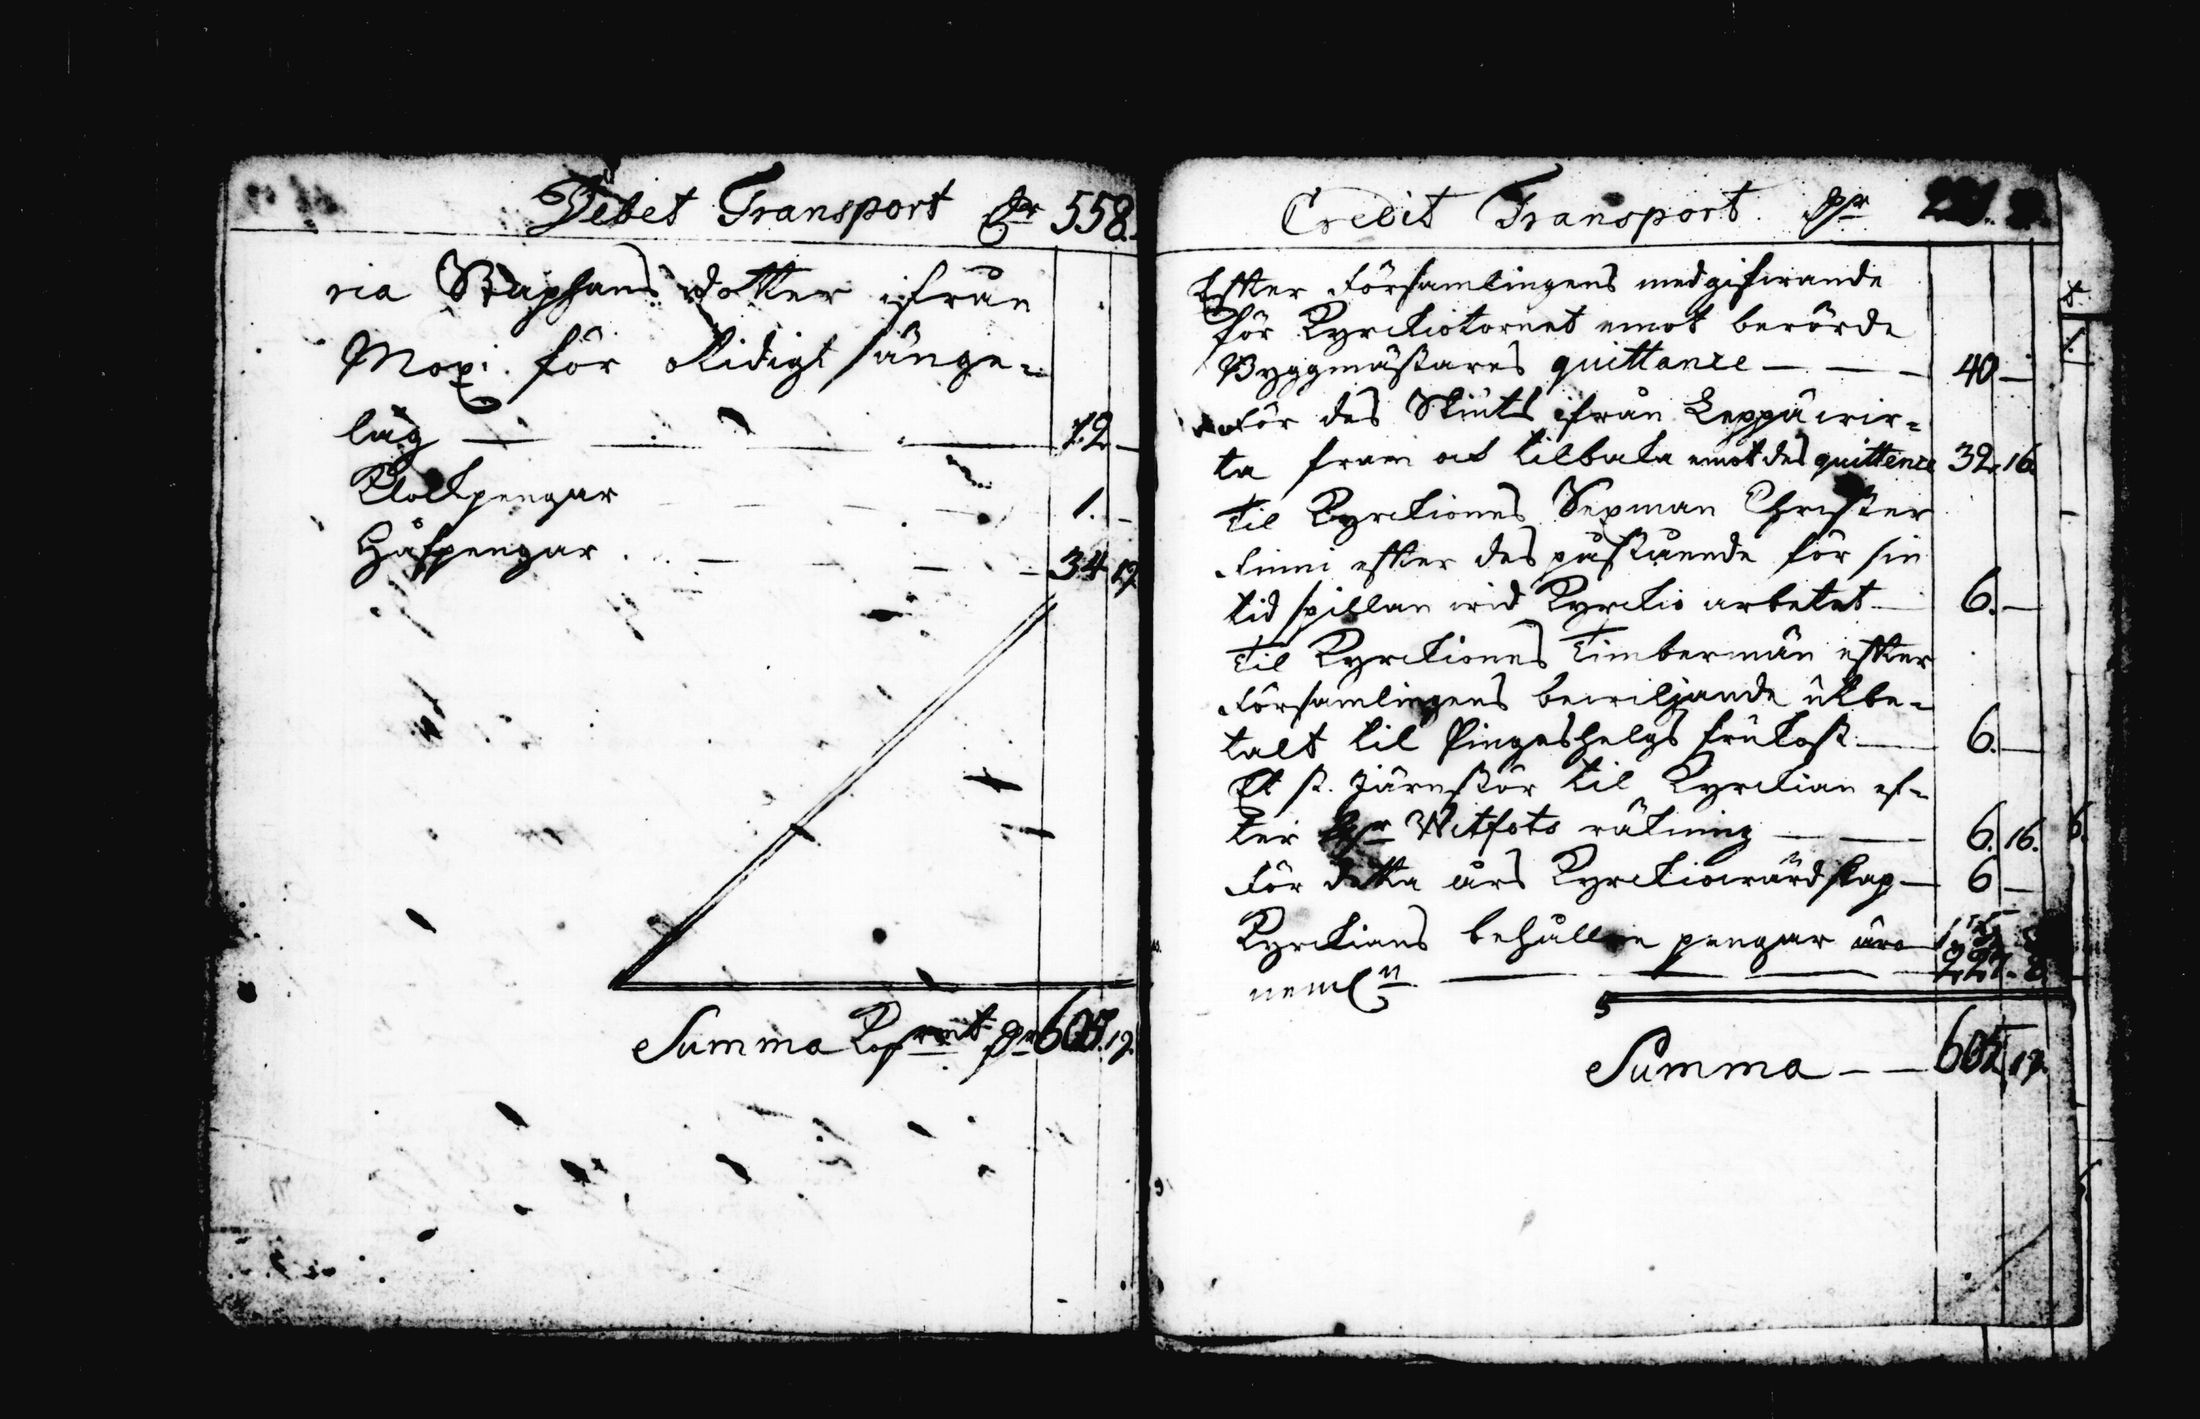 Debet Transport 558.
ria Staphans dotter ifrån
Moxi. för otidigt sänge-
lag — — — 12 —
Klockpengar — — — 1. —
Håfpengar — — — 34 17
Summa 605. 17.
Credit Transport.
Efter Församlingens medgifwande
för Kyrckiotornet emot berörde
Byggmästares quittance — — 40 —
För des Skiuts ifrån Leppäwir-
ta fram at tilbaka emot des quittence 32. 16.
Til Kyrckiones Sexman Christer
Finni efter des påstående för sin
tid spillan wid Kyrckio arbetet — 6. —
Til Kyrckiones Timbermän efter
Församlingens bewiljande utbe-
talt til Pingeshelgs frukost — 6. —
Et st. Järnstör til Kyrckian ef-
ter Witfots räkning — — 6. 16.
För detta års Kyrckiowärdskap — 6 —
Kyrckians behållne pengar äro
neml:n —
Summa — — 605. 17.